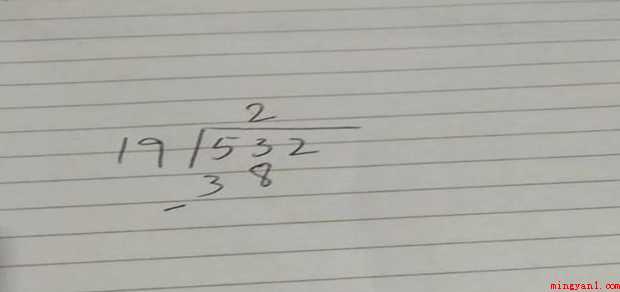 2
19 /532
- 38
mingyan1.com